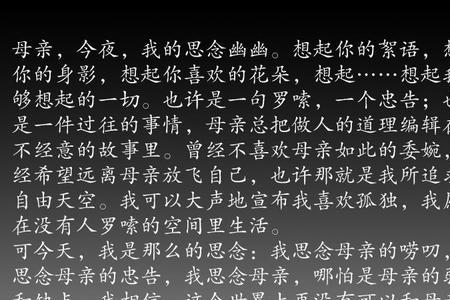 母亲，今夜，我的思念幽幽。想起你的絮语，想
你的身影，想起你喜欢的花朵，想起……想起我
够想起的一切。也许是一句罗嗦，一个忠告；也
是一件过往的事情，母亲总把做人的道理编辑在
不经意的故事里。曾经不喜欢母亲如此的委婉，
经希望远离母亲放飞自己，也许那就是我所追求
自由天空。我可以大声地宣布我喜欢孤独，我愿
在没有人罗嗦的空间里生活。
可今天，我是那么的思念：我思念母亲的唠叨，
思念母亲的忠告，我思念母亲，哪怕是母亲的
和缺点。我相信，这个世界上再没有可以和母亲